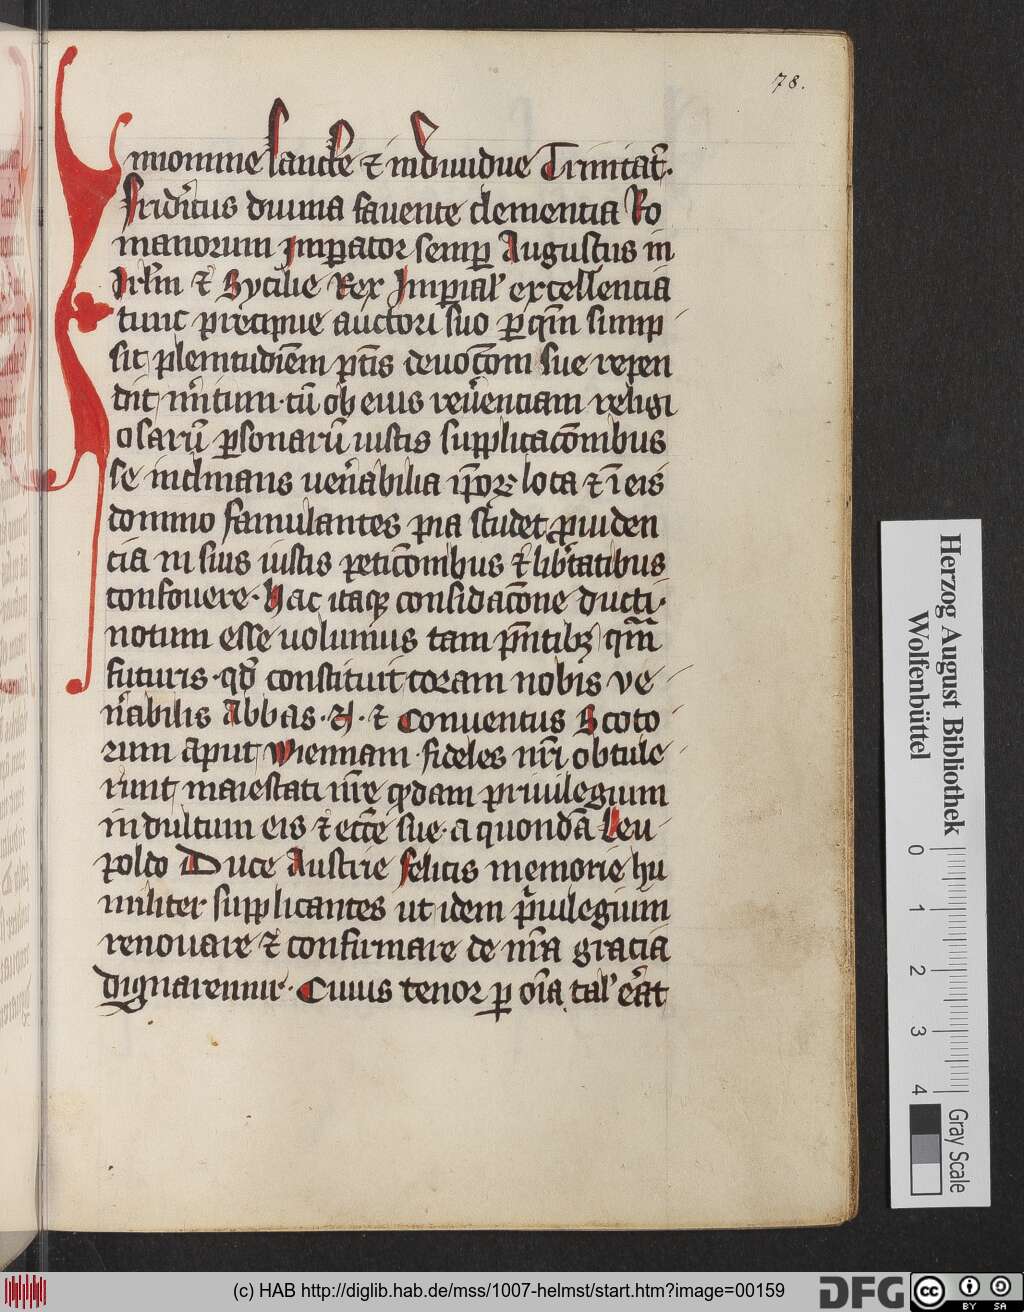 78.
In nomine sancte ⁊ indiuidue Trinitat̉.
Frid̉icus diuina fauente clementia Ro
manorum Imꝑator semꝑ Augustus in
Ierl̄m ⁊ Sycilie Rex Imꝑial̉ excellencia
tunc precipue auctori suo ꝑ qm̄ sump
sit plenitudiēm ptīs deuoc̄oni sue repen
dit m̉itum. cū ob eius reủenciam religi
osarū ꝑsonarū iustis supplicac̄onibus
se inclinans uen̉abilia ip̄oꝝ loca ⁊ ī eis
domino famulantes pia studet ꝓuiden
cia in suis iustis petic̄onibus ⁊ lib̉tatibus
confouere. Hac itaqꝫ considac̄one ducti.
notum esse uolumus tam pn̄tibꝫ qm̄
futuris. qd̉ constituti coram nobis ve
n̉abilis Abbas .H. ⁊ Conuentus Scoto
rum aput Wiennam. fideles nr̄i obtule
runt maiestati nr̄e qᷓdam priuilegium
indultum eis ⁊ ecc̄e sue. a quondā Leu
poldo Duce Austrie felicis memorie hu
militer supplicantes ut idem pͥuilegium
renouare ⁊ confirmare de nr̄a gracia
dignaremur. Cuius tenor ꝑ oīa tal̉ er̉at
Herzog August Bibliothek
Wolfenbüttel
0 1 2 3 4
Gray Scale
(c) HAB http://diglib.hab.de/mss/1007-helmst/start.htm?image=00159
DFG
cc BY SA